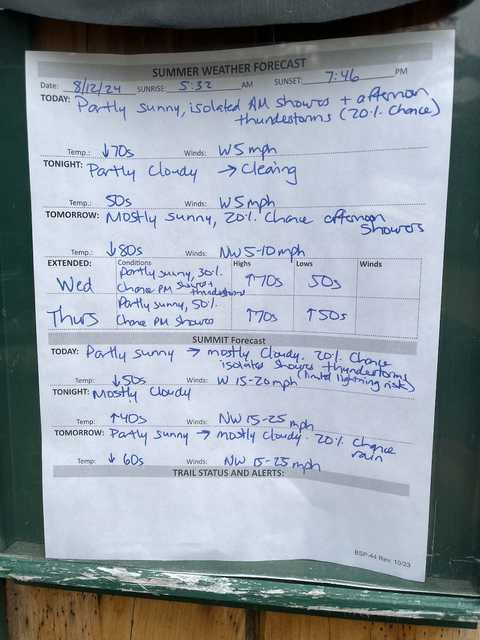 SUMMER WEATHER FORECAST
Date: 8/12/24 SUNRISE: 5:32 AM SUNSET: 7:46 PM
TODAY: Partly sunny, isolated AM showers + afternoon
thunderstorms (20% chance)
Temp.: ↓70s Winds: W 5 mph
TONIGHT: Partly Cloudy → Clearing
Temp: 50s Winds: W 5 mph
TOMORROW: Mostly sunny, 20% Chance afternoon
showers
Temp.: ↓80s Winds: NW 5-10 mph
EXTENDED: Conditions Highs Lows Winds
Wed Partly sunny, 30% ↑70s 50s
Chance PM showers + thunderstorms
Thurs Partly sunny, 50% ↑70s ↑50s
Chance PM showers
SUMMIT Forecast
TODAY: Partly sunny → mostly cloudy. 20% Chance
isolated showers + thunderstorms
(limited lightning risk)
Temp: ↓50s Winds: W 15-20 mph
TONIGHT: Mostly Cloudy
Temp: ↑40s Winds: NW 15-25 mph
TOMORROW: Partly sunny → mostly cloudy. 20% chance
rain
Temp: ↓60s Winds: NW 15-25 mph
TRAIL STATUS AND ALERTS:
BSP-44 Rev. 10/23